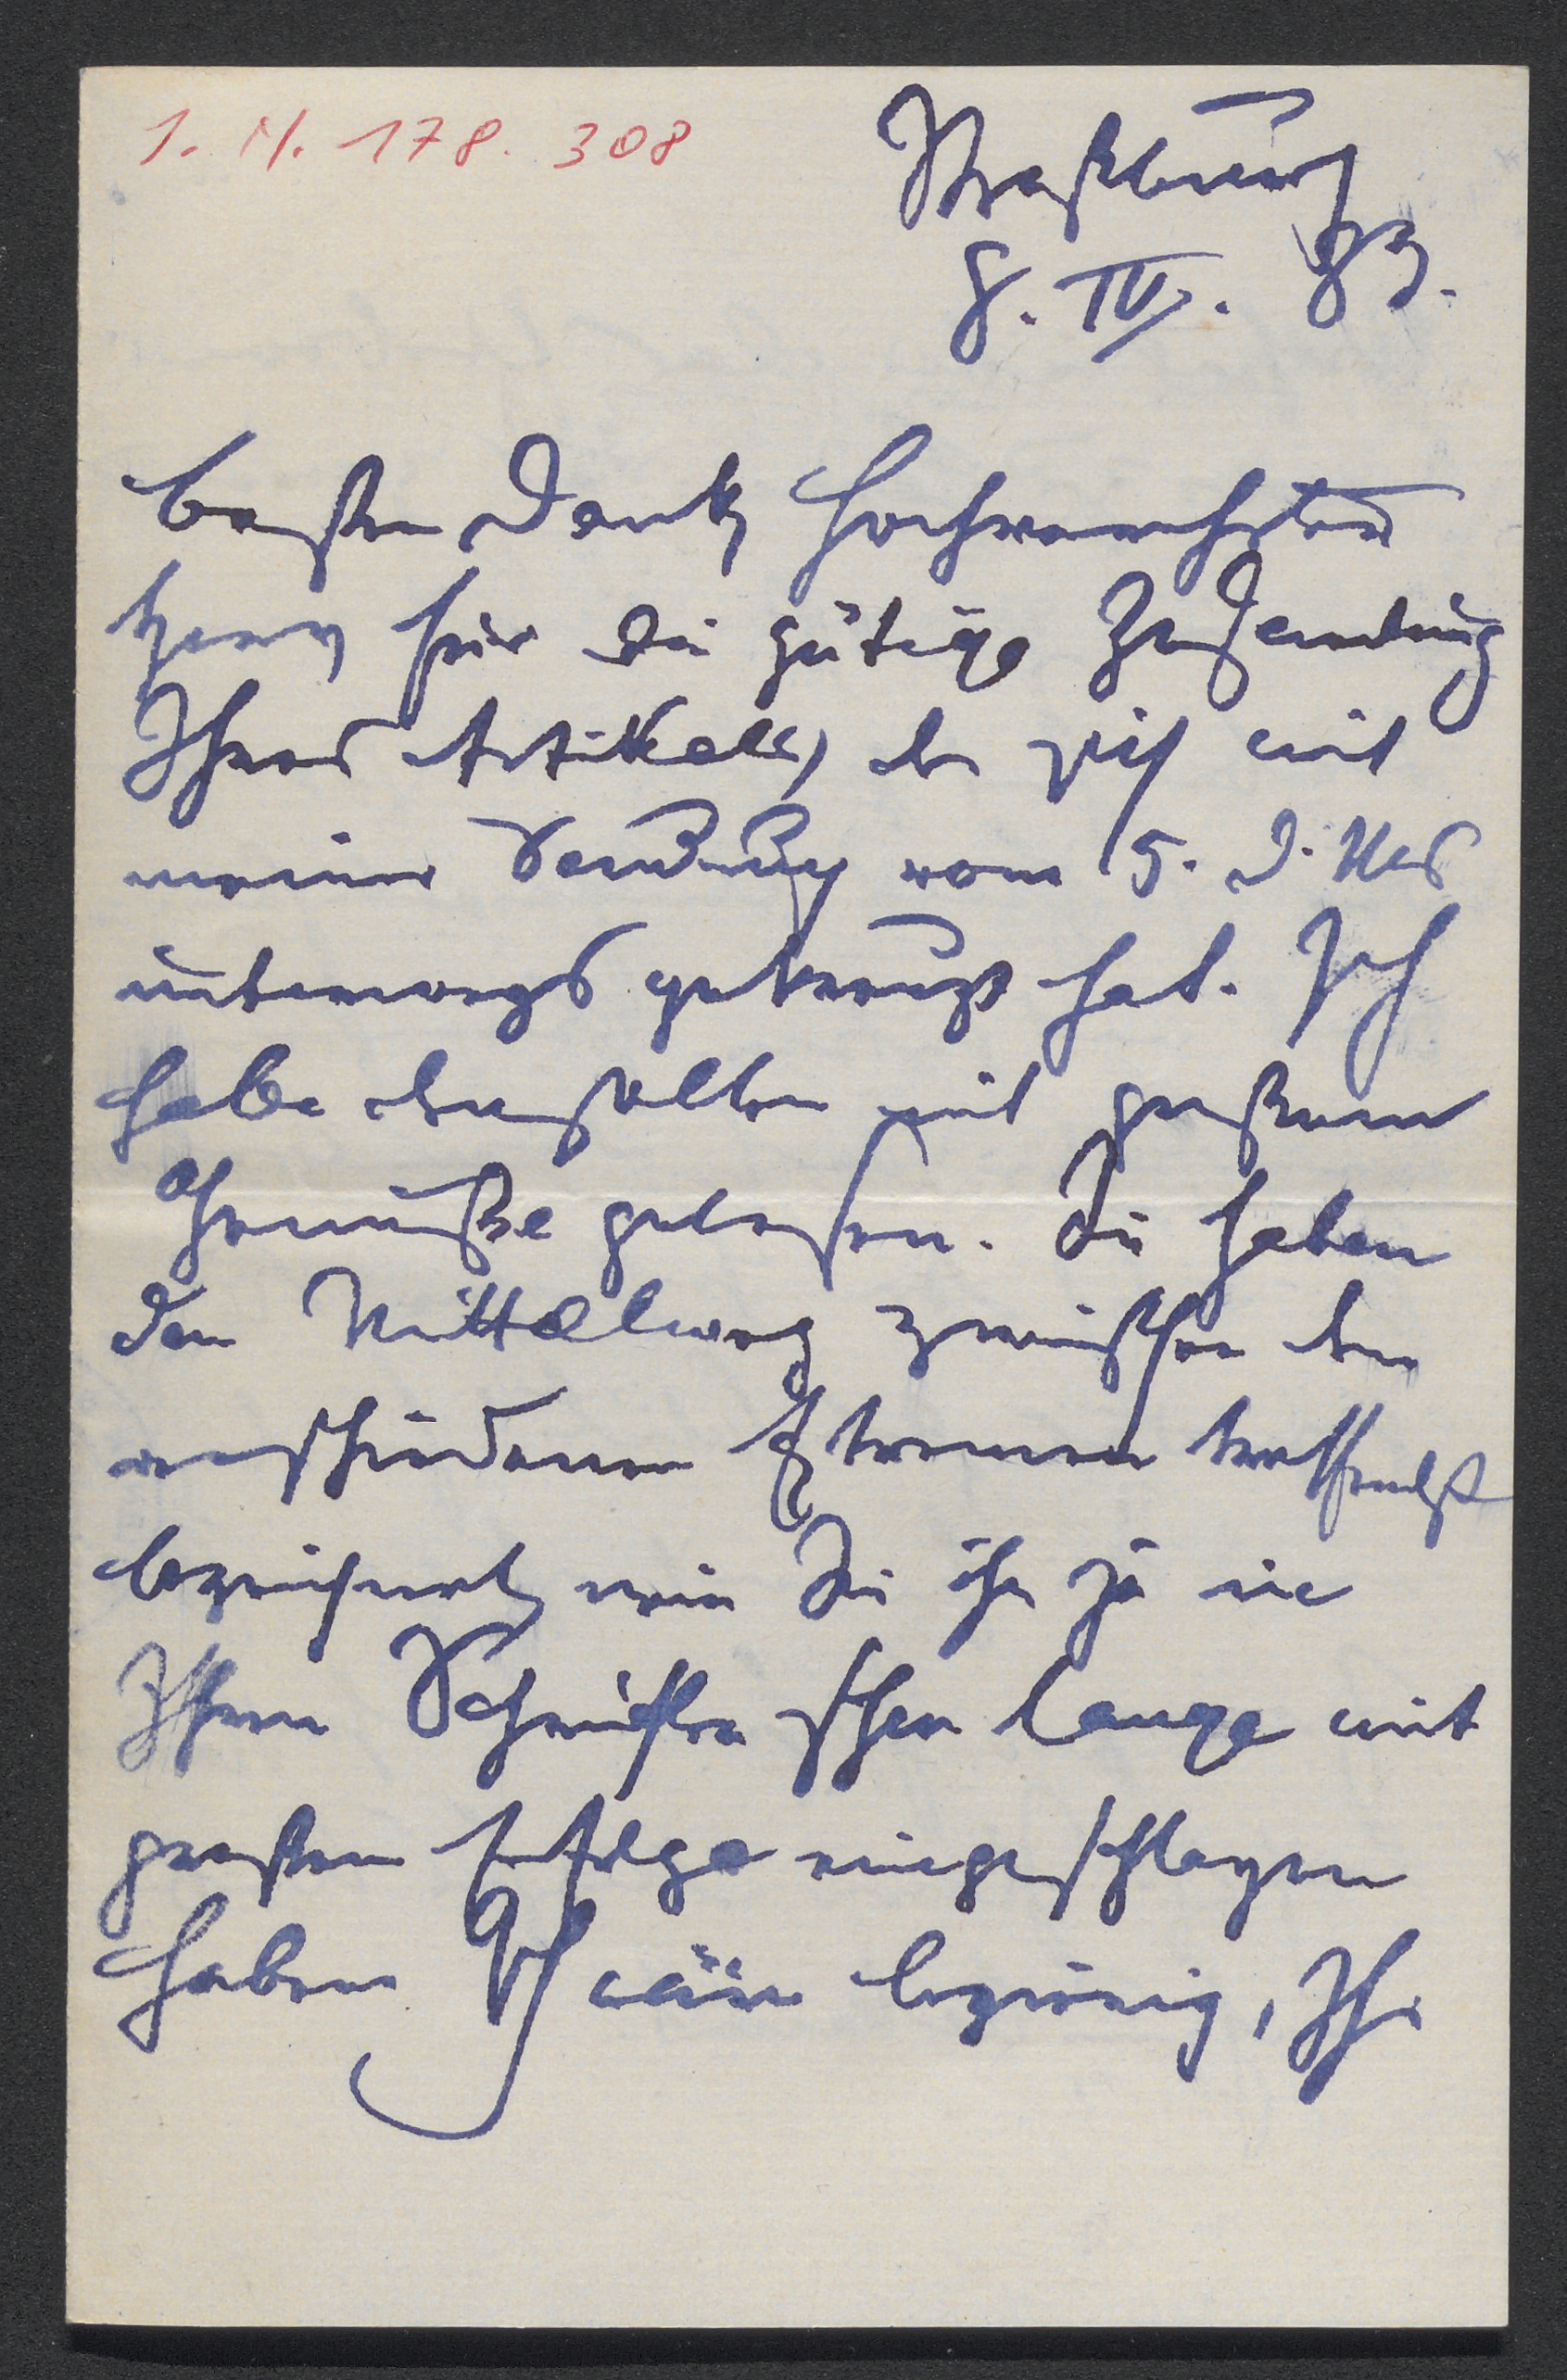 I. N. 178.308
Straßburg
8. IV. 83.
Besten Dank, hochverehrter
Herr, für die gütige Zusendung
Ihres Artikels, der sich mit
meiner Sendung vom 5. d. Mts
unterwegs gekreuzt hat. Ich
habe denselben mit großem
Genuße gelesen. Sie haben
den Mittelweg zwischen den
verschiedenen Extremen treffendst
bezeichnet, wie Sie ihn ja in
Ihren Schriften schon lange mit
großem Erfolge eingeschlagen
haben. Ich wäre begierig, Ihr